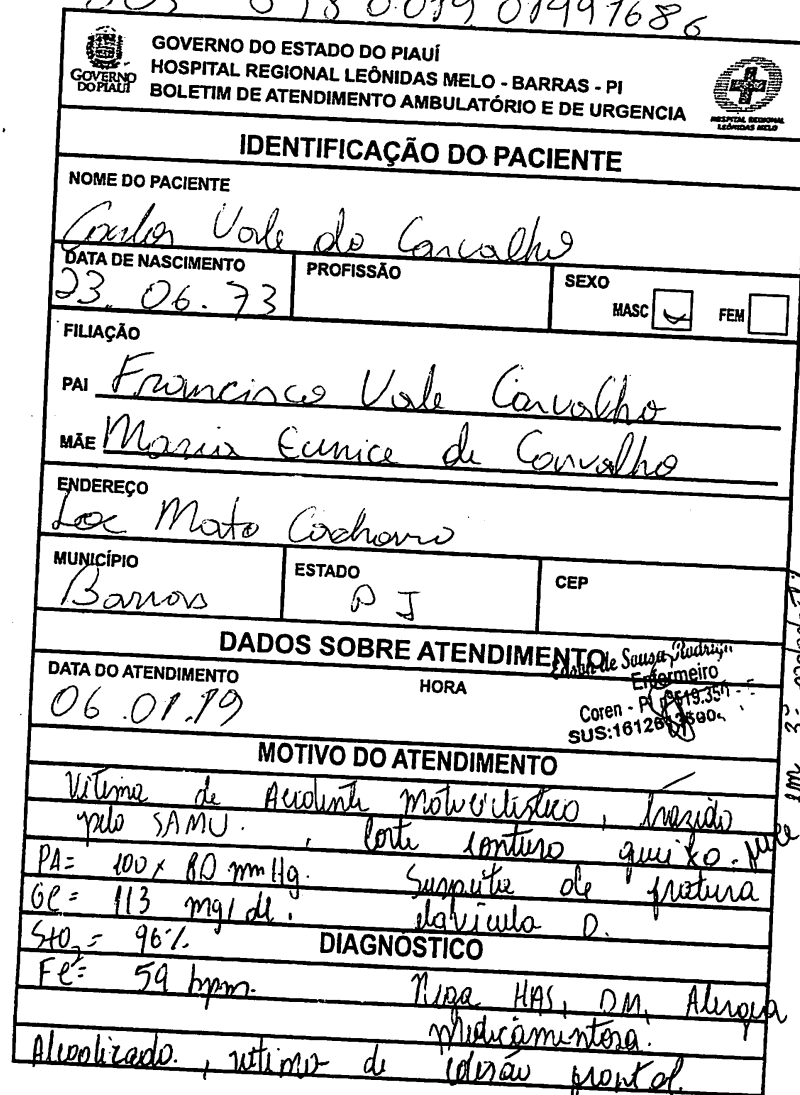 0 019 01997686
GOVERNO DO ESTADO DO PIAUÍ
HOSPITAL REGIONAL LEÔNIDAS MELO - BARRAS - PI
BOLETIM DE ATENDIMENTO AMBULATÓRIO E DE URGENCIA
GOVERNO DO PIAUÍ
HOSPITAL REGIONAL LEÔNIDAS MELO
IDENTIFICAÇÃO DO PACIENTE
NOME DO PACIENTE
Carlos Vale do Carvalho
DATA DE NASCIMENTO PROFISSÃO SEXO
23.06.73 MASC FEM
FILIAÇÃO
PAI Francisco Vale Carvalho
MÃE Maria Eunice de Carvalho
ENDEREÇO
Loc Mato
MUNICÍPIO ESTADO CEP
Barras PI
DADOS SOBRE ATENDIMENTO
de Sousa Rodrigu
Enfermeiro
DATA DO ATENDIMENTO HORA
06.01.19
Coren - PI
SUS:16126
MOTIVO DO ATENDIMENTO
Vitima de Acidente motociclistico, trazido
pelo SAMU. , corte contuso queixo.
PA= 100 x 80 mmHg. Suspeita de fratura
GC= 113 mg/dl. clavicula D.
StO2= 96%
DIAGNÓSTICO
FC= 59 bpm. Nega HAS, DM, Alergia
medicamentosa.
Alcoolizado. , vitima de colisão frontal.